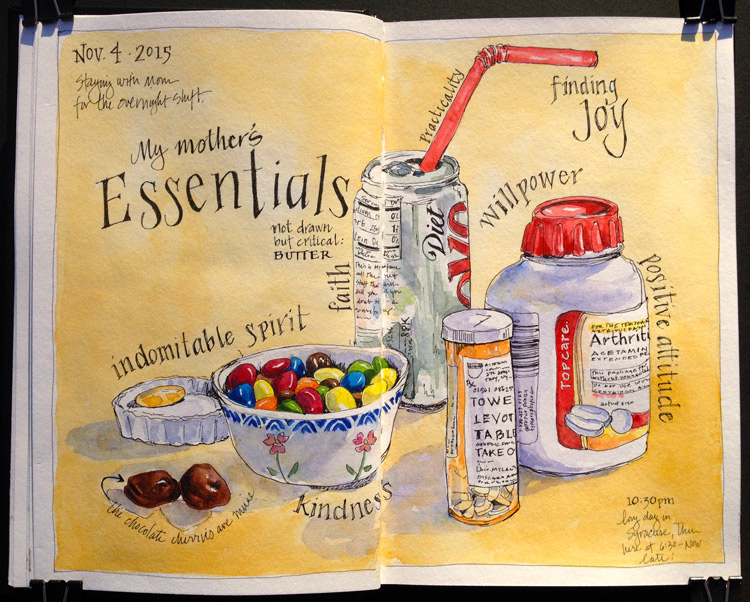 Nov. 4 · 2015
Staying with Mom
for the overnight shift.
My mother's
Essentials
not drawn
but critical:
BUTTER
faith
indomitable spirit
the chocolate cherries are mine
kindness
Practicality
finding
Joy
willpower
positive attitude
Diet
TOPCARE
Arthrit
ACETAMIN
EXTENDED RE
actual size
Rx
TOWE
LEVOT
TABL
TAKE O
10:30pm
long day in
Syracuse, then
here at 6:30 - Now
late!